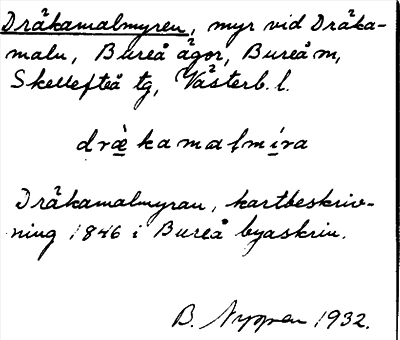 Dräkamalmyren, myr vid Dräka-
maln, Bureå ägor, Bureå m,
Skellefteå tg, Västerb. l.
dræ̀kamaļmíra
Dräkamalmyran, kartbeskriv-
ning 1846 i Bureå byaskrin.
B. Nyman 1932.